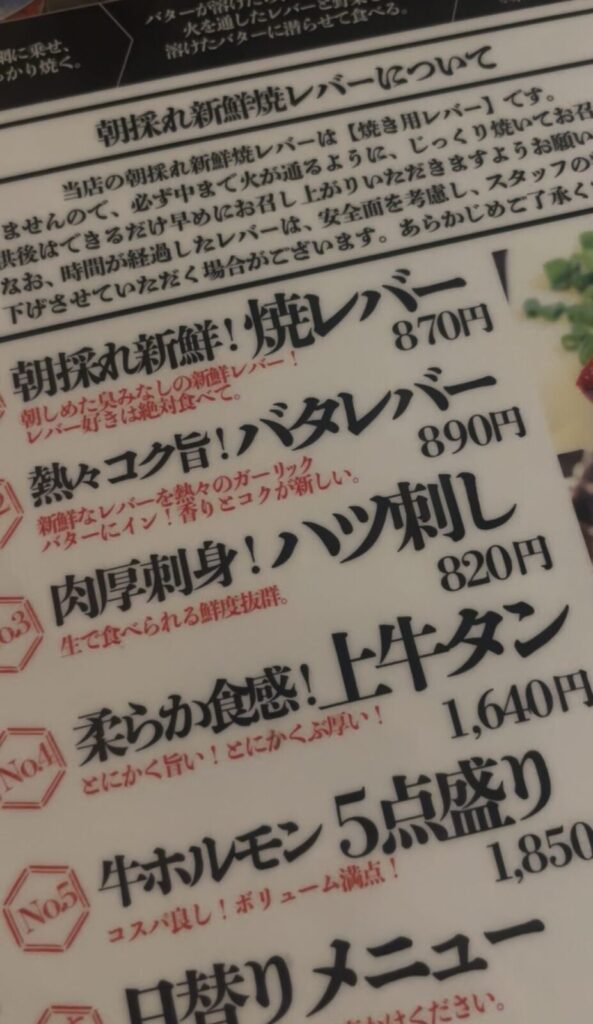 網に乗せ、
っかり焼く。
バターが溶けた
火を通したレバーと野菜を
溶けたバターに潜らせて食べる。
朝採れ新鮮焼レバーについて
当店の朝採れ新鮮焼レバーは【焼き用レバー】です。
ませんので、必ず中まで火が通るように、じっくり焼いてお召
供後はできるだけ早めにお召し上がりいただきますようお願い
なお、時間が経過したレバーは、安全面を考慮し、スタッフの
下げさせていただく場合がございます。あらかじめご了承く
朝採れ新鮮!焼レバー
870円
朝しめた臭みなしの新鮮レバー!
レバー好きは絶対食べて。
2
熱々コク旨!バタレバー
890円
新鮮なレバーを熱々のガーリック
バターにイン!香りとコクが新しい。
No.3
肉厚刺身!ハツ刺し
820円
生で食べられる鮮度抜群。
No.4
柔らか食感!上牛タン
1,640円
とにかく旨い!とにかくぶ厚い!
No.5
牛ホルモン 5点盛り
1,850
コスパ良し!ボリューム満点!
日替りメニュー
かけください。